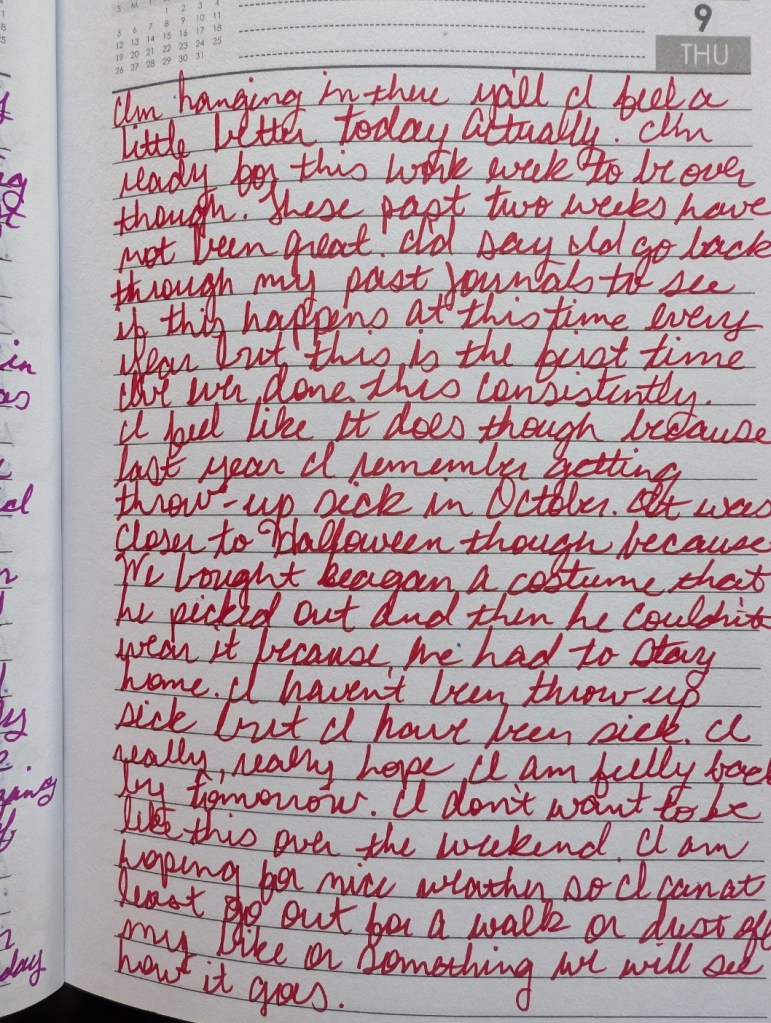 S M T 1 2 3 4
5 6 7 8 9 10 11
12 13 14 15 16 17 18
19 20 21 22 23 24 25
26 27 28 29 30 31
9
THU
I'm hanging in there yall I feel a
little better today actually. I'm
ready for this work week to be over
though. These past two weeks have
not been great. I'd say I'd go back
through my past journals to see
if this happens at this time every
year but this is the first time
I've ever done this consistently.
I feel like it does though because
last year I remember getting
throw-up sick in October. It was
closer to Halloween though because
We bought Keagan a costume that
he picked out and then he couldn't
wear it because we had to stay
home. I haven't been throw up
sick but I have been sick. I
really, really hope I am fully back
by tomorrow. I don't want to be
like this over the weekend. I am
hoping for nice weather so I can at
least go out for a walk or dust off
my bike or something we will see
how it goes.
in
as
day